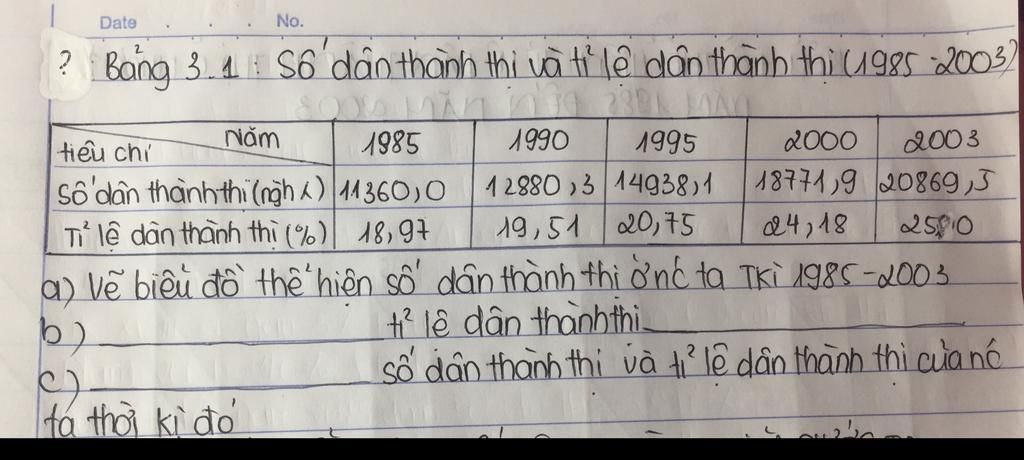 Date . . . No.
? Bảng 3.1: Số dân thành thị và tỉ lệ dân thành thị (1985-2003)
Năm 1985 1990 1995 2000 2003
tiêu chí
Số dân thành thị (ngh λ) 11360,0 12880,3 14938,1 18771,9 20869,5
Tỉ lệ dân thành thị (%) 18,97 19,51 20,75 24,18 25,80
a) Vẽ biểu đồ thể hiện số dân thành thị ở nć ta TKì 1985-2003
b) ____________ tỉ lệ dân thành thị ____________
c) ____________ số dân thành thị và tỉ lệ dân thành thị của nć
ta thời kì đó